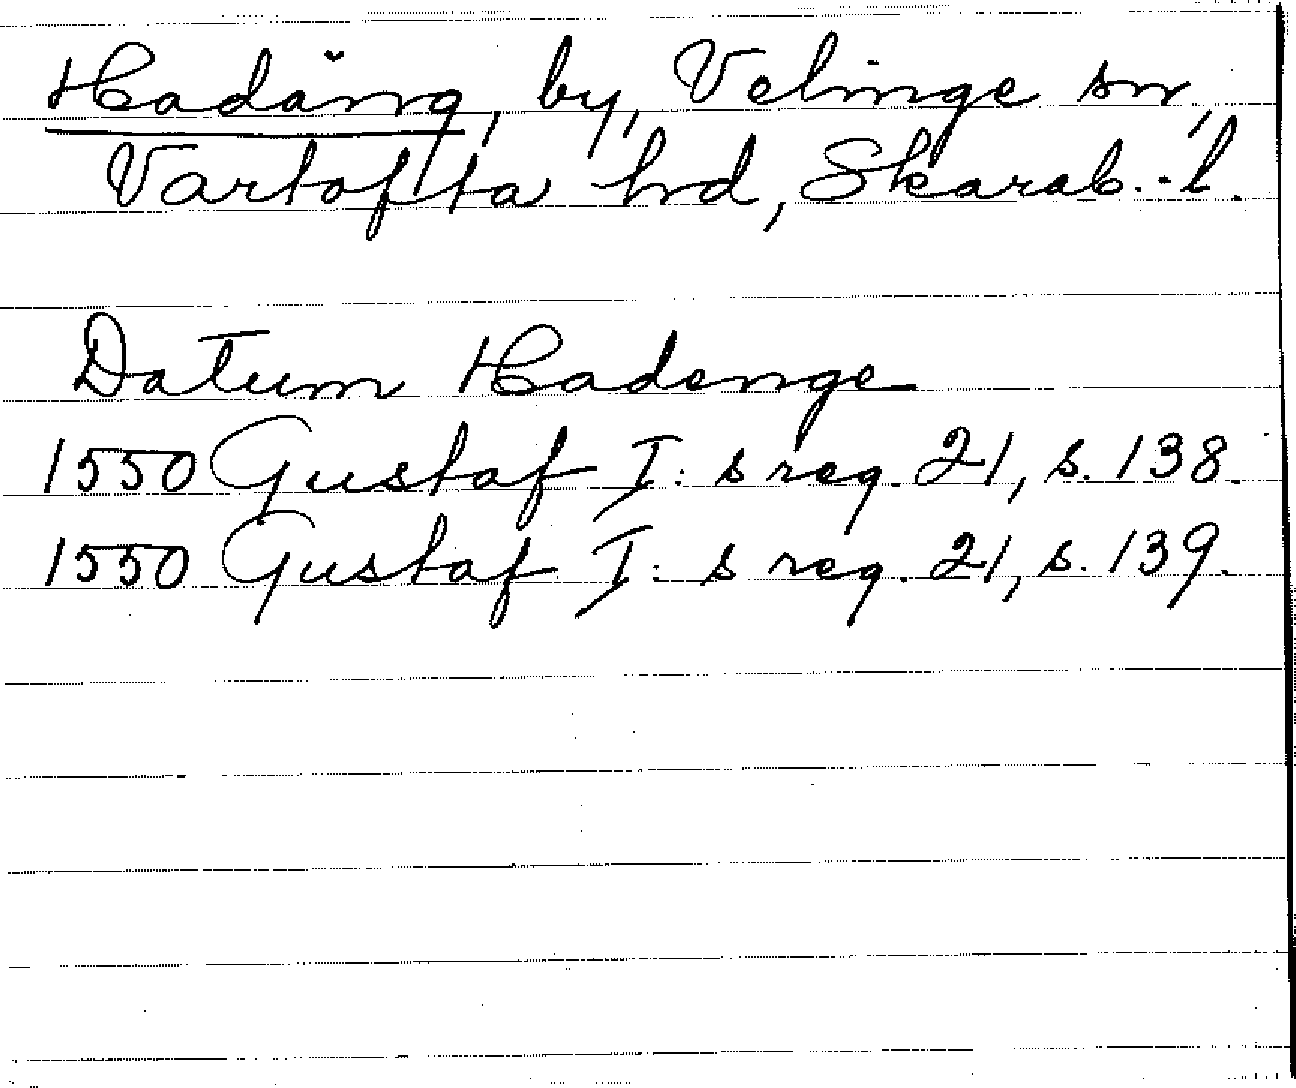 Hadäng, by, Velinge sn,
Vartofta hd, Skarab.-l.
Datum Hadenge
1550 Gustaf I:s reg. 21, s. 138.
1550 Gustaf I:s reg. 21, s. 139.